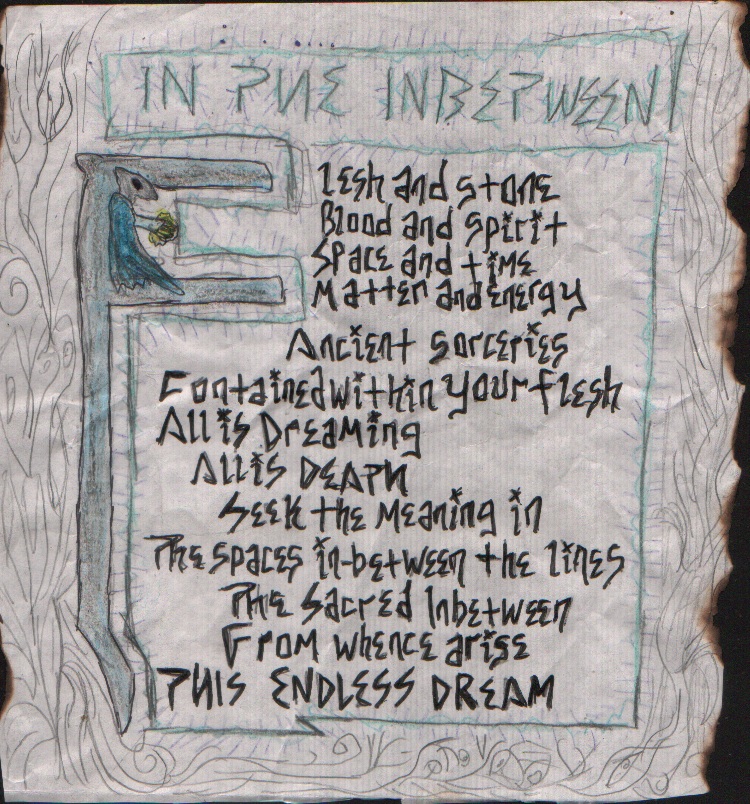 IN THE INBETWEEN
Flesh and stone
Blood and spirit
Space and time
Matter and energy
Ancient sorceries
Contained within your flesh
All is Dreaming
All is DEATH
Seek the Meaning in
The spaces in-between the lines
The Sacred Inbetween
From whence arise
THIS ENDLESS DREAM